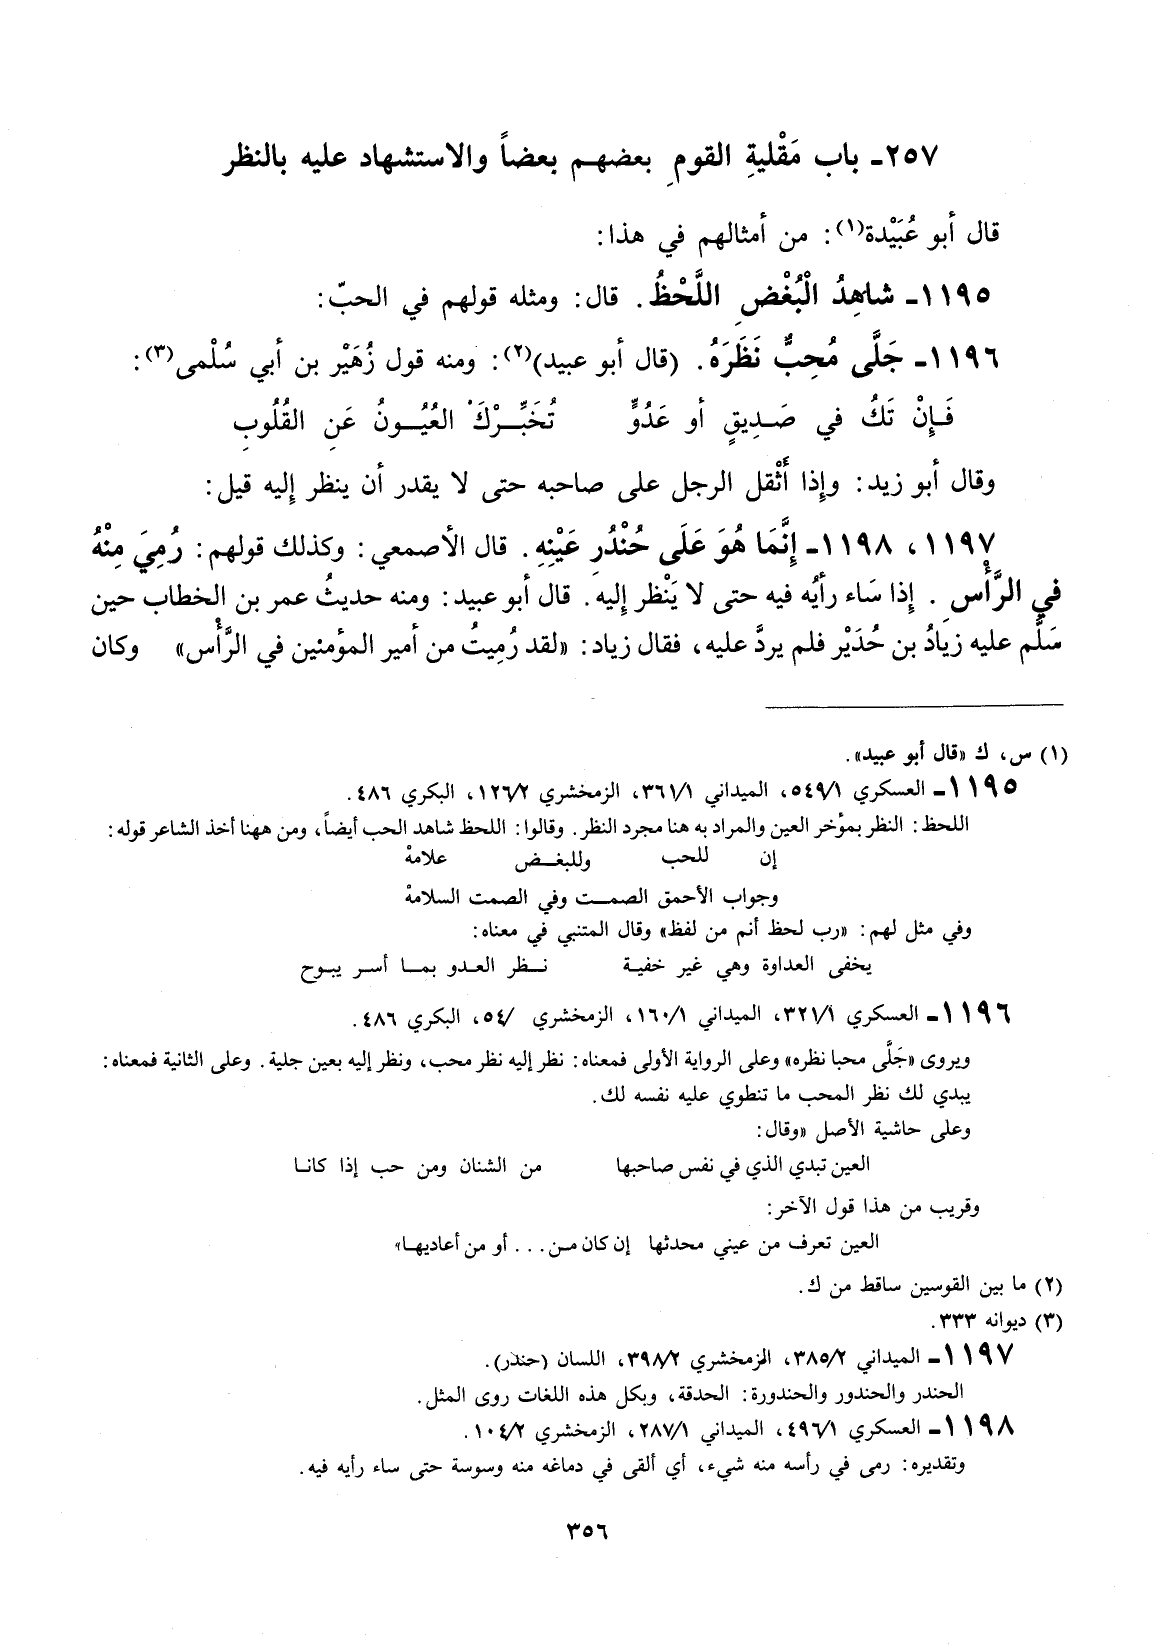 ٢٥٧ـ باب مَقْليةِ القومِ بعضهم بعضاً والاستشهاد عليه بالنظر
قال أبو عُبَيْدة(١): من أمثالهم في هذا:
١١٩٥ـ شاهِدُ الْبُغْضِ اللَّحْظُ. قال: ومثله قولهم في الحبّ:
١١٩٦ـ جَلَّى مُحِبٌّ نَظَرَهُ. (قال أبو عبيد)(٢): ومنه قول زُهَيْر بن أبي سُلْمى(٣):
فَإِنْ تَكُ في صَدِيقٍ أو عَدُوٍّ تُخَبِّرْكَ العُيُونُ عَنِ القُلُوبِ
وقال أبو زيد: وإِذا أَثْقل الرجل على صاحبه حتى لا يقدر أن ينظر إِليه قيل:
١١٩٧، ١١٩٨ـ إِنَّمَا هُوَ عَلَى حُنْدُرِ عَيْنِهِ. قال الأصمعي: وكذلك قولهم: رُمِيَ مِنْهُ
في الرَّأْسِ. إِذا سَاء رأيُه فيه حتى لا يَنْظر إِليه. قال أبو عبيد: ومنه حديثُ عمر بن الخطاب حين
سَلَّم عليه زيادُ بن حُدَيْر فلم يردَّ عليه، فقال زياد: «لقد رُمِيتُ من أمير المؤمنين في الرَّأْس» وكان
(١) س، ك «قال أبو عبيد».
١١٩٥ـ العسكري ٥٤٩/١، الميداني ٣٦١/١، الزمخشري ١٢٦/٢، البكري ٤٨٦.
اللحظ: النظر بمؤخر العين والمراد به هنا مجرد النظر. وقالوا: اللحظ شاهد الحب أيضاً، ومن ههنا أخذ الشاعر قوله:
إن للحب وللبغض علامهْ
وجواب الأحمق الصمت وفي الصمت السلامهْ
وفي مثل لهم: «رب لحظ أنم من لفظ» وقال المتنبي في معناه:
يخفى العداوة وهي غير خفية نظر العدو بما أسر يبوح
١١٩٦ـ العسكري ٣٢١/١، الميداني ١٦٠/١، الزمخشري /٥٤، البكري ٤٨٦.
ويروى «جَلَّى محبا نظره» وعلى الرواية الأولى فمعناه: نظر إليه نظر محب، ونظر إليه بعين جلية. وعلى الثانية فمعناه:
يبدي لك نظر المحب ما تنطوي عليه نفسه لك.
وعلى حاشية الأصل «وقال:
العين تبدي الذي في نفس صاحبها من الشنان ومن حب إذا كانا
وقريب من هذا قول الآخر:
العين تعرف من عيني محدثها إن كان من... أو من أعاديها»
(٢) ما بين القوسين ساقط من ك.
(٣) ديوانه ٣٣٣.
١١٩٧ـ الميداني ٣٨٥/٢، الزمخشري ٣٩٨/٢، اللسان (حندر).
الحندر والحندور والحندورة: الحدقة، وبكل هذه اللغات روى المثل.
١١٩٨ـ العسكري ٤٩٦/١، الميداني ٢٨٧/١، الزمخشري ١٠٤/٢.
وتقديره: رمى في رأسه منه شيء، أي ألقى في دماغه منه وسوسة حتى ساء رأيه فيه.
٣٥٦